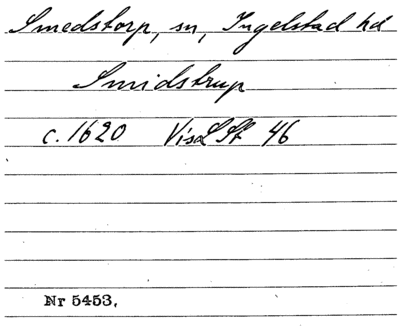 Smedstorp, sn, Ingelstad hd
Smidstrup
c. 1620 VisdLSt 46
Nr 5453,